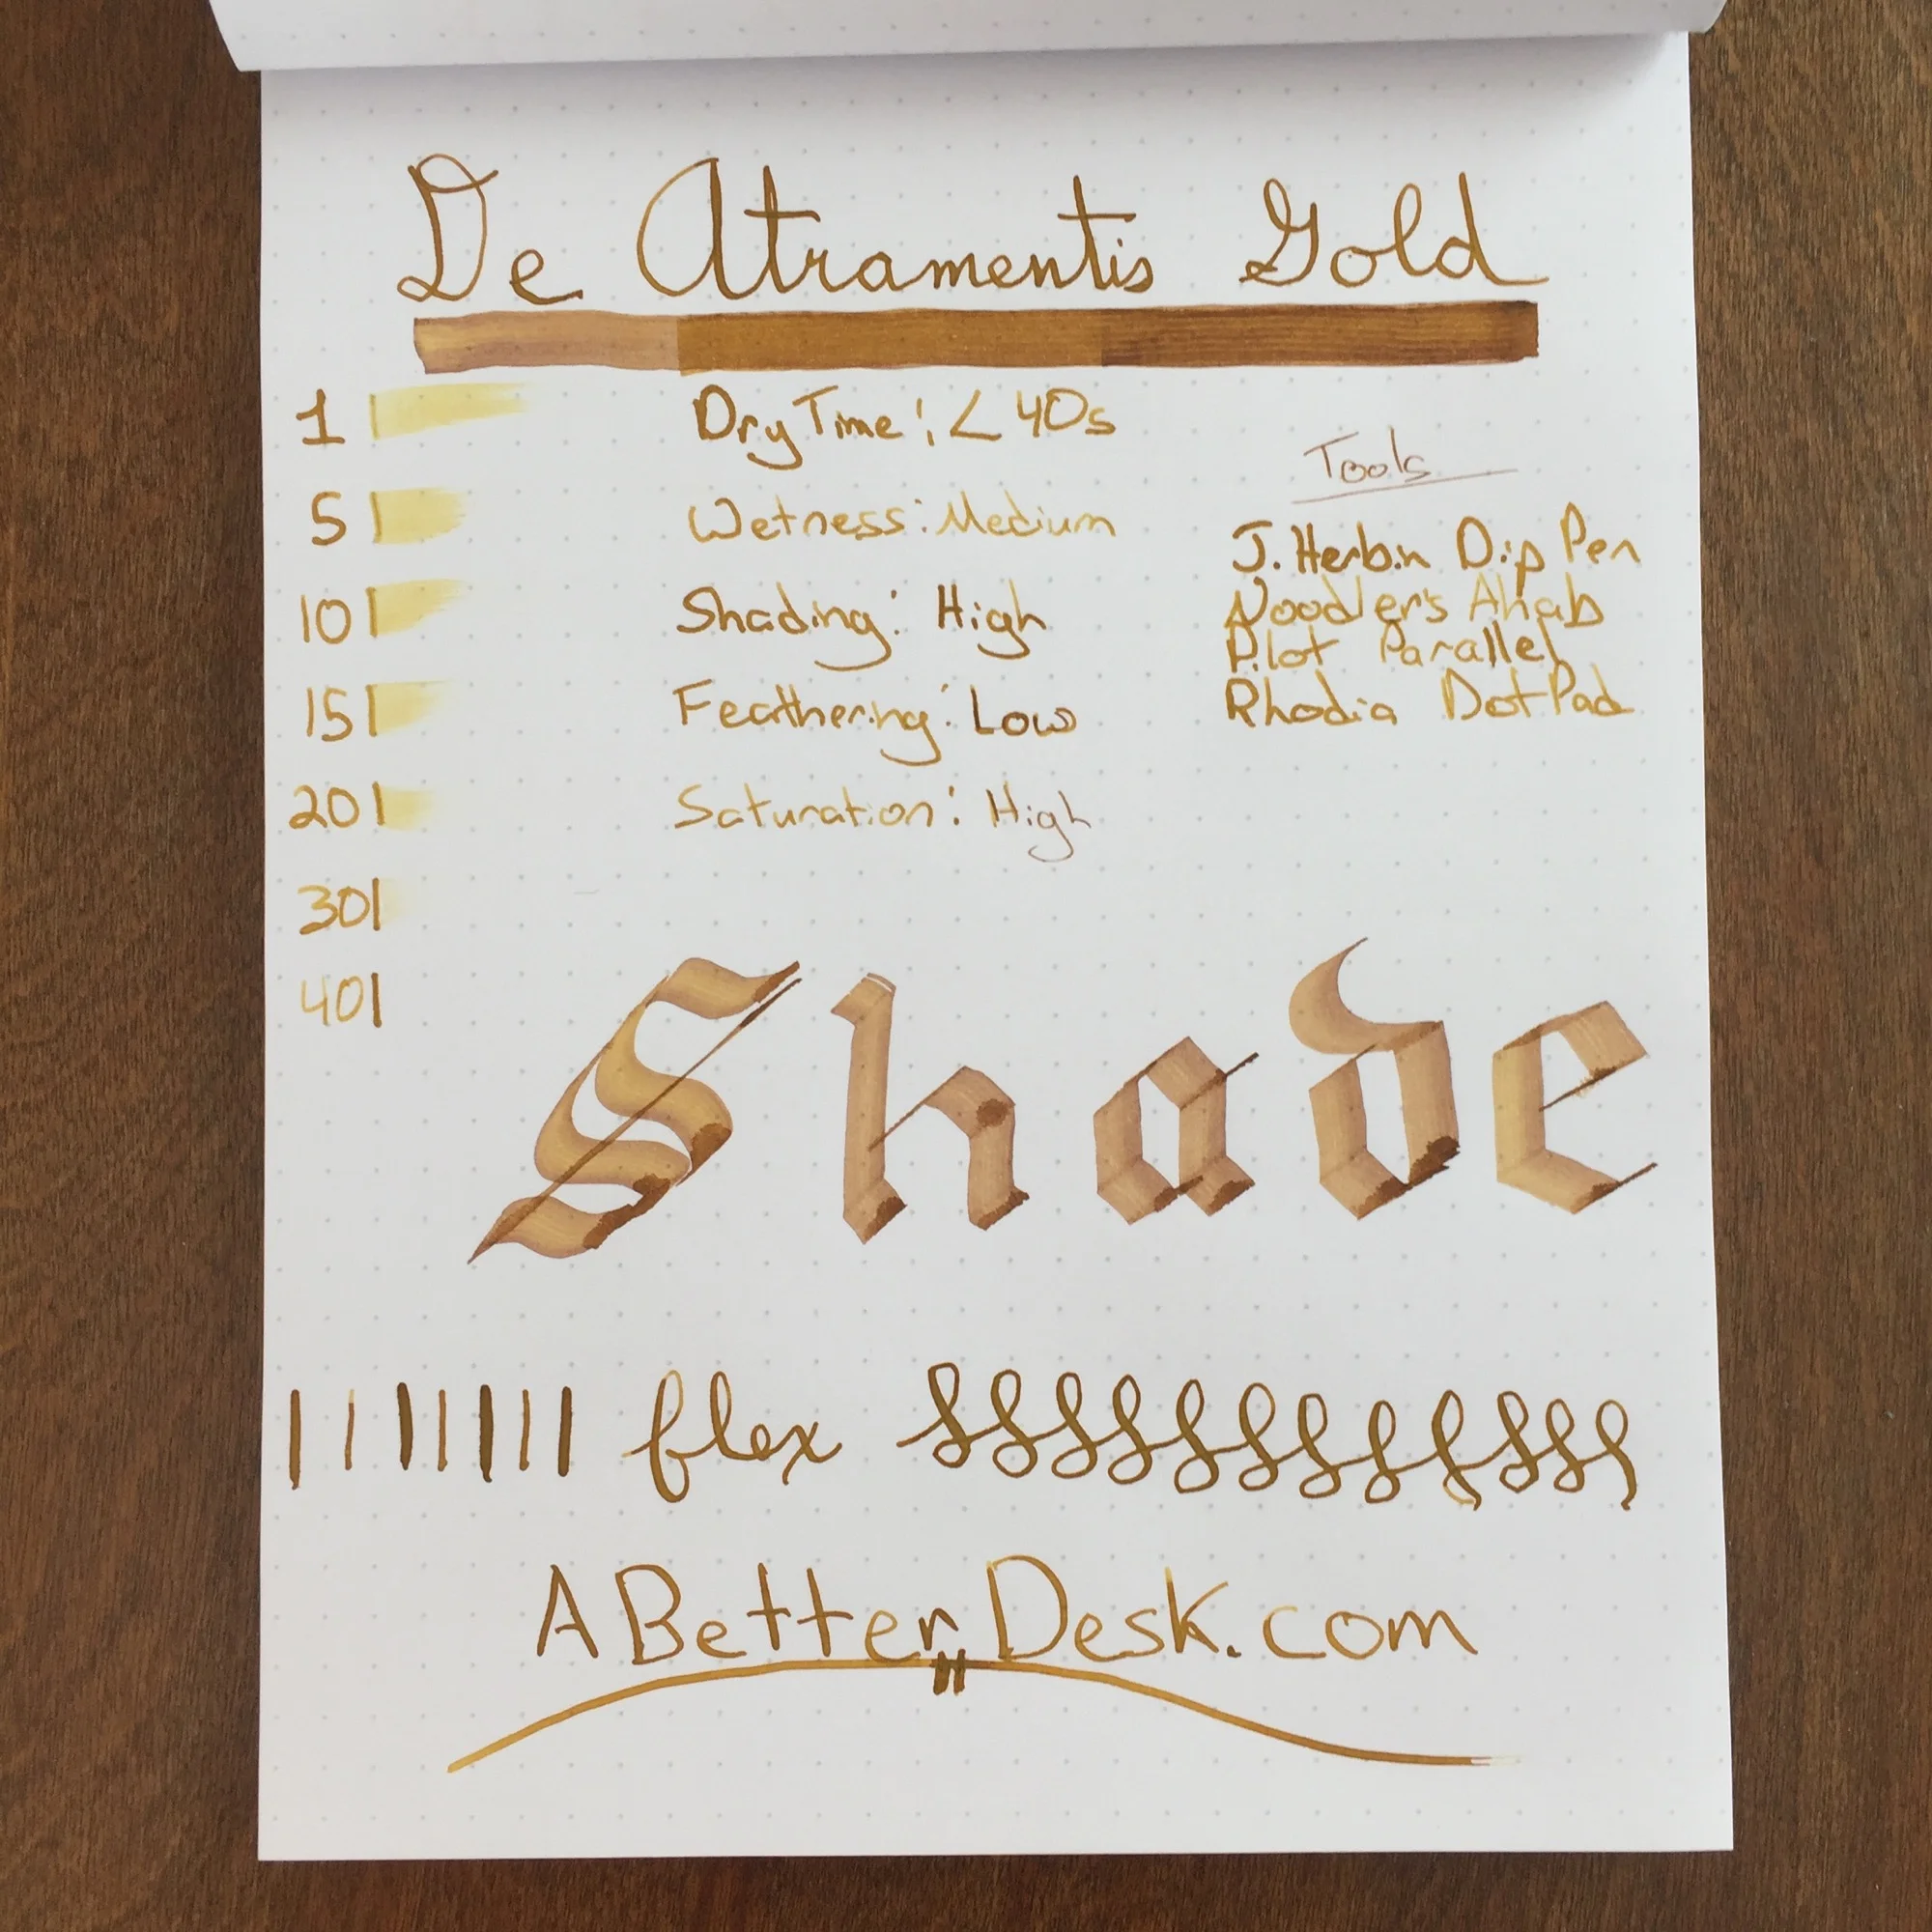 De Atramentis Gold
1
5
10
15
20
30
40
Dry Time: < 40s
Wetness: Medium
Shading: High
Feathering: Low
Saturation: High
Tools
J. Herbin Dip Pen
Noodler's Ahab
Pilot Parallel
Rhodia DotPad
Shade
flex
ABetterDesk.com